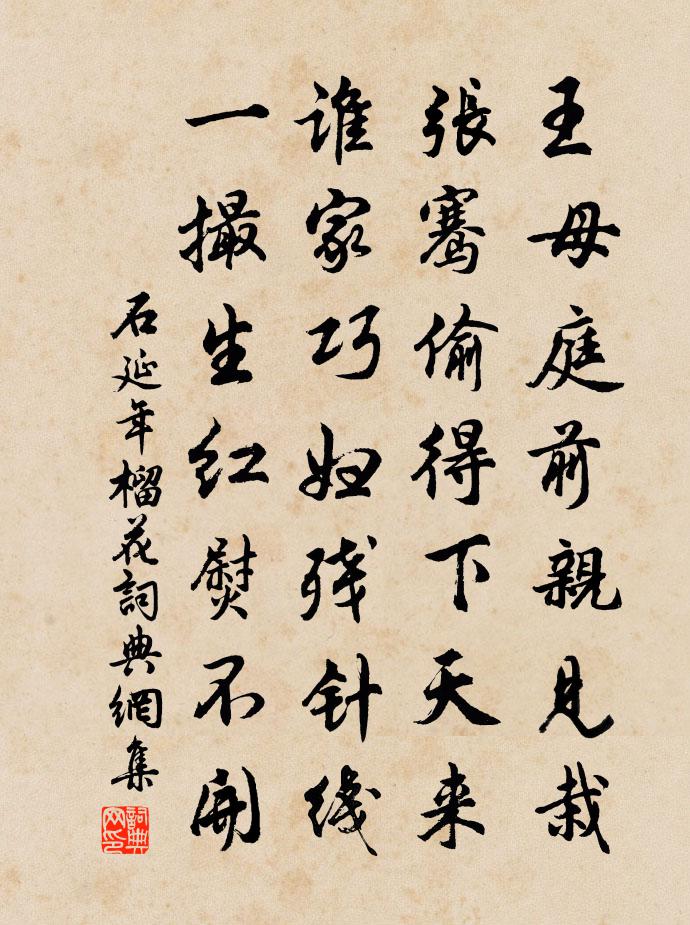 王母庭前親見栽
張騫偷得下天来
谁家巧妇残针线
一撮生红熨不开
石延年榴花詞典網集
詞典网印